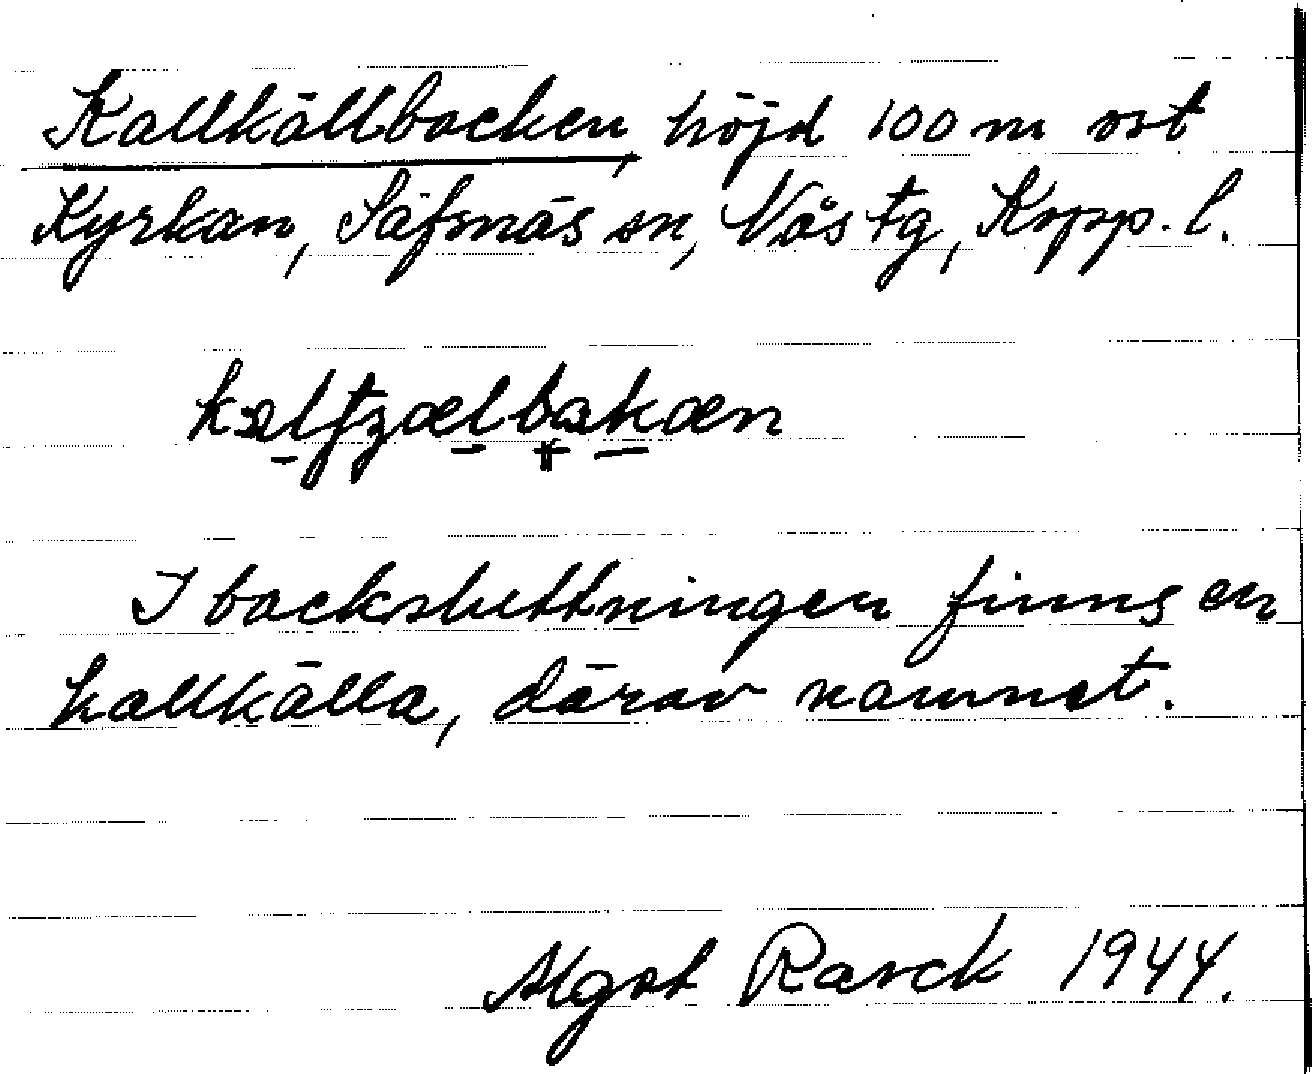 Kallkällbacken, höjd 100 m ost
Kyrkan, Säfsnäs sn, Nås tg, Kopp. l.
I backsluttningen finns en
kallkälla, därav namnet.
Algot Rarck 1944.